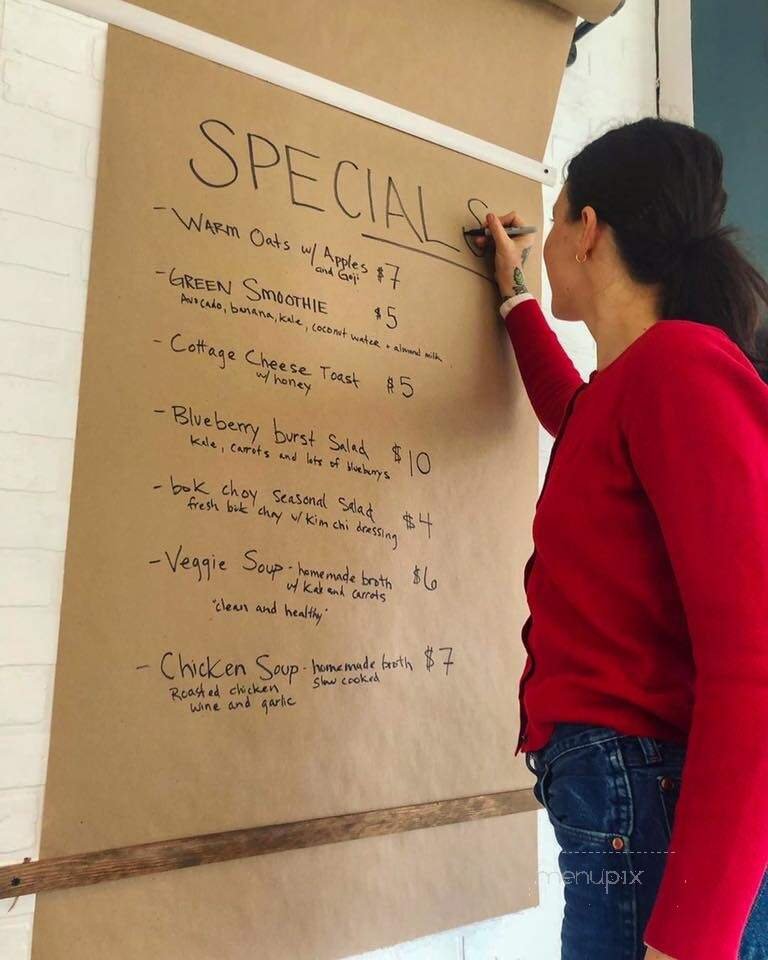 SPECIALS
- WARM Oats w/ Apples $7
and Goji
- GREEN SMOOTHIE $5
Avocado, banana, kale, coconut water + almond milk
- Cottage Cheese Toast $5
w/ honey
- Blueberry burst Salad $10
kale, carrots and lots of blueberrys
- bok choy seasonal salad $4
fresh bok choy w/ kim chi dressing
- Veggie Soup - homemade broth $6
w/ Kale and carrots
"clean and healthy"
- Chicken Soup - homemade broth $7
Roasted chicken slow cooked
wine and garlic
menupix